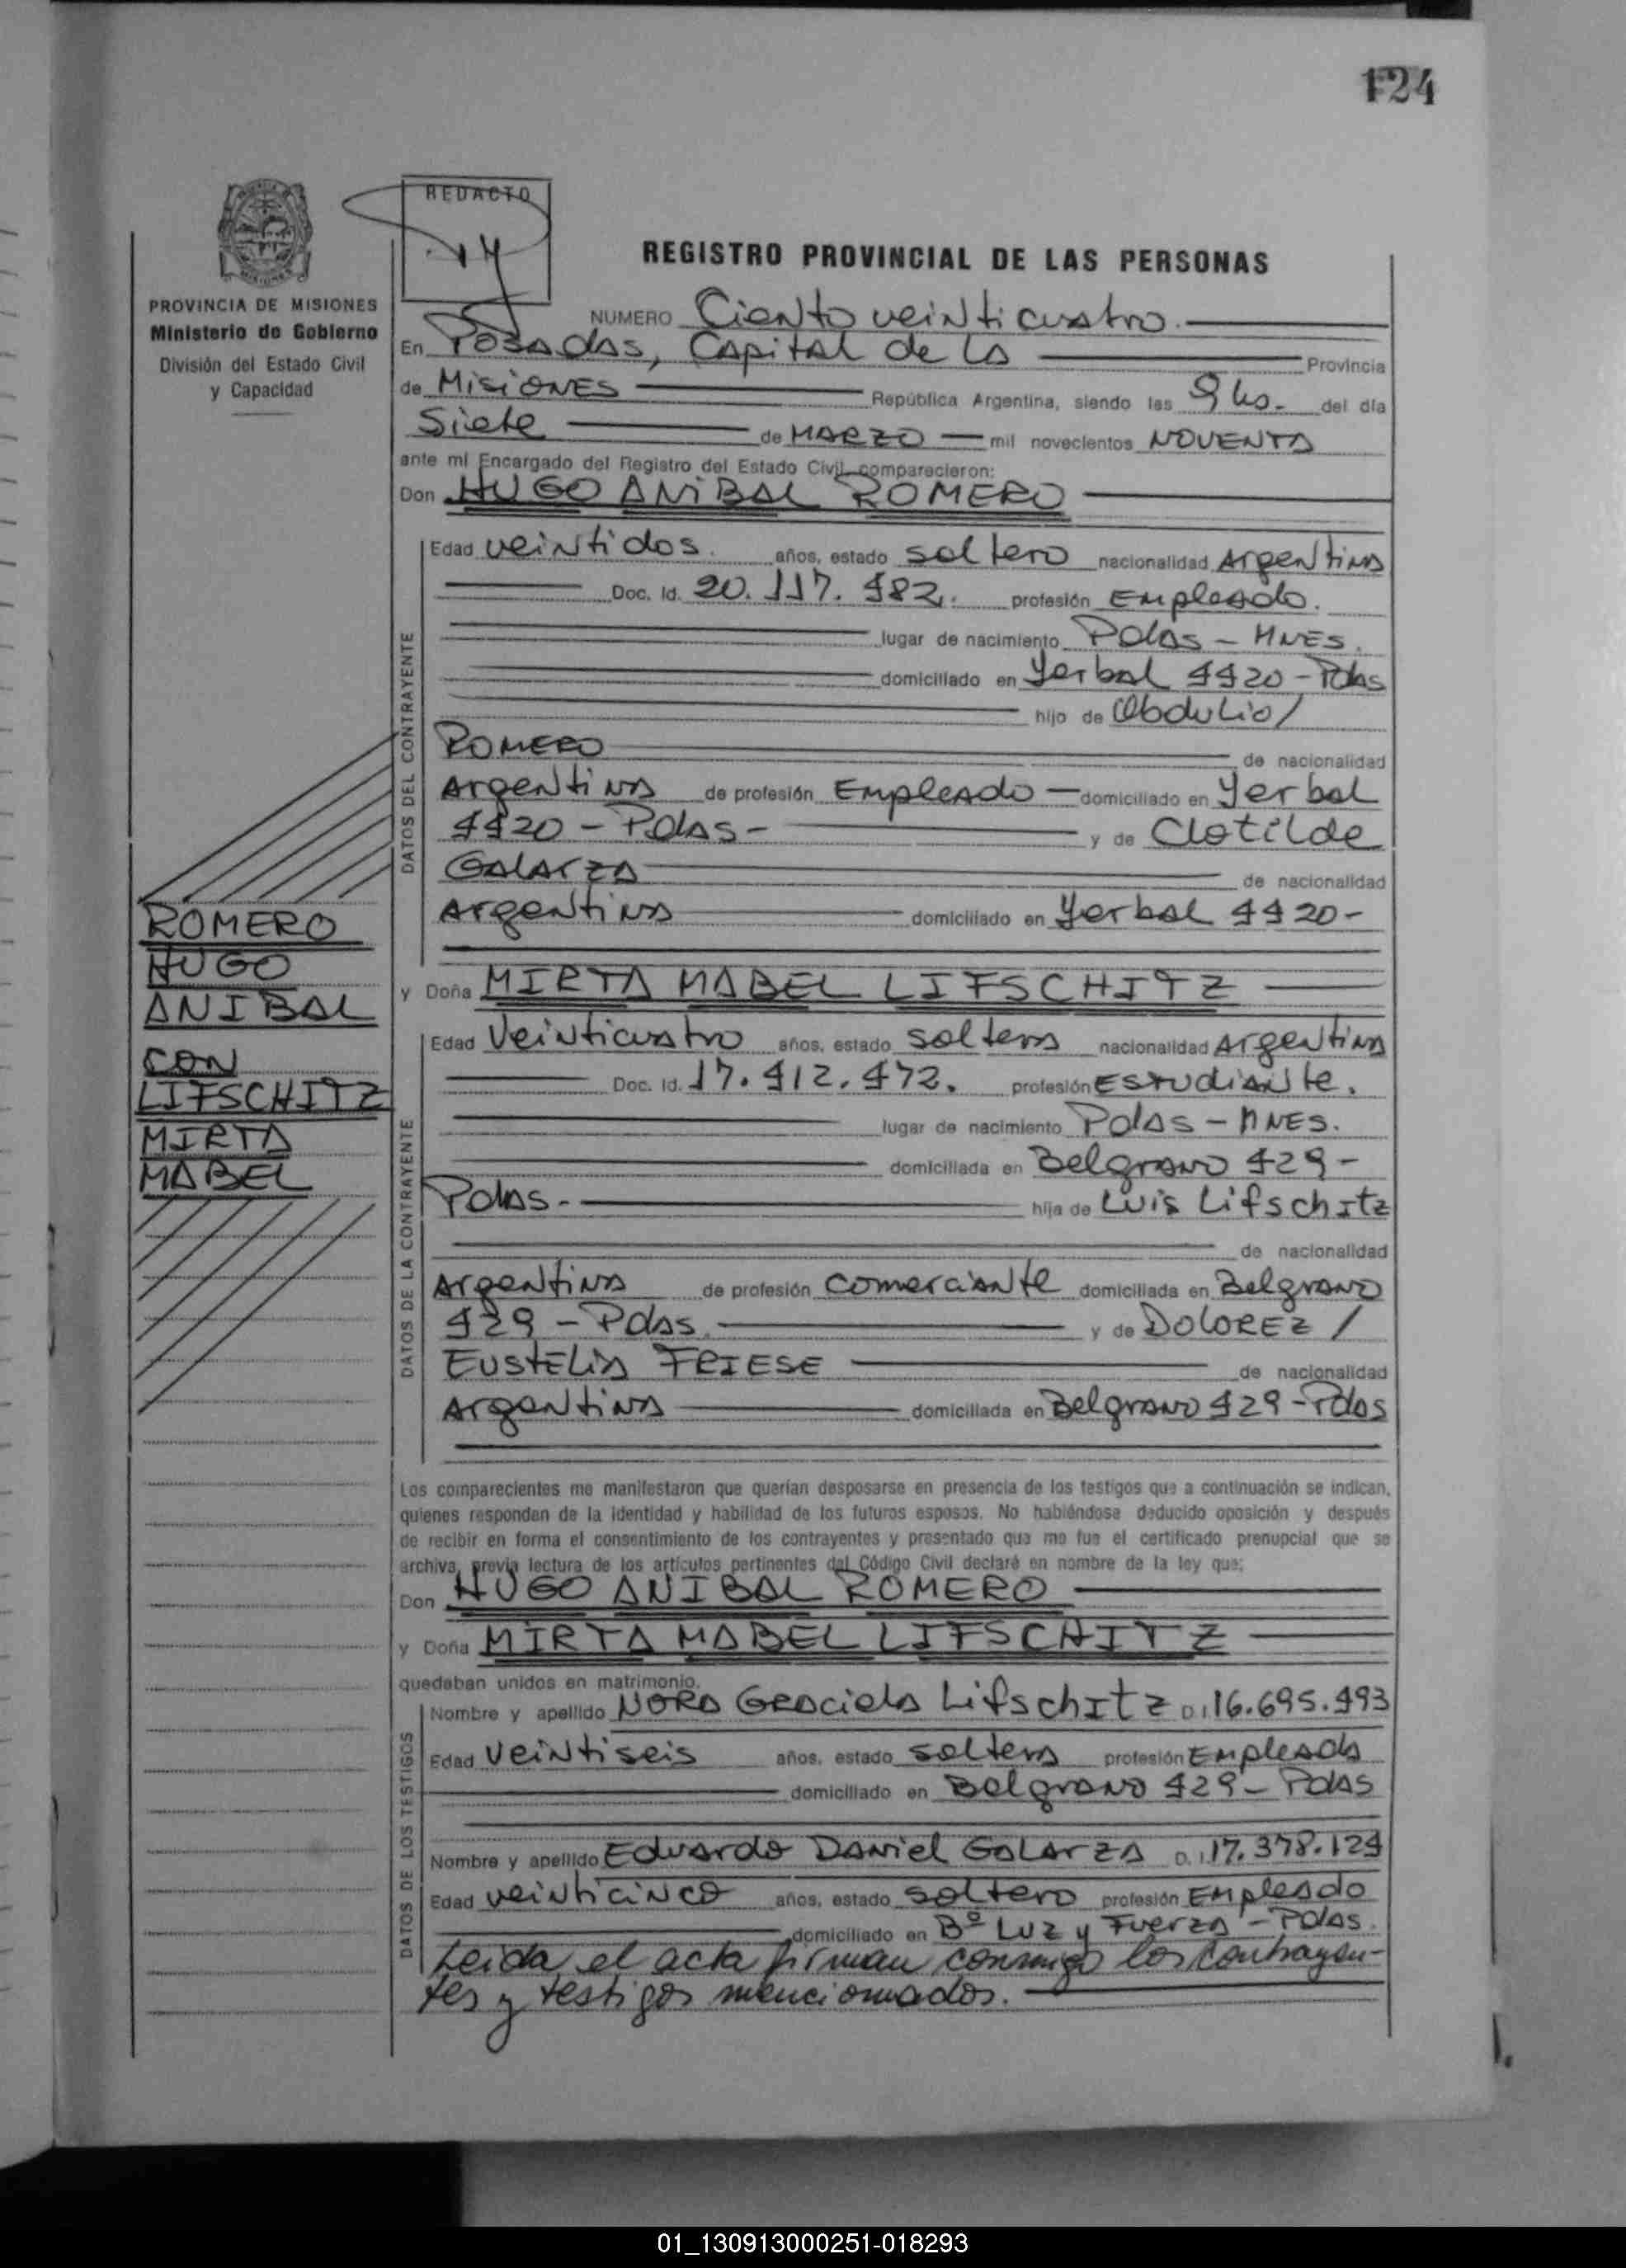 124
REDACTO
14
PROVINCIA DE MISIONES
Ministerio de Gobierno
División del Estado Civil
y Capacidad
REGISTRO PROVINCIAL DE LAS PERSONAS
NUMERO Ciento veinticuatro.
En Posadas, Capital de la Provincia
de Misiones República Argentina, siendo las 9 hs. del día
Siete de MARZO mil novecientos NOVENTA
ante mi Encargado del Registro del Estado Civil comparecieron:
Don HUGO ANIBAL ROMERO
DATOS DEL CONTRAYENTE
Edad veintidos. años, estado soltero nacionalidad Argentina
Doc. Id. 20.117.482. profesión Empleado.
lugar de nacimiento Pdas - Mnes.
domiciliado en Yerbal 4420 - Pdas
hijo de Obdulio/
ROMERO de nacionalidad
Argentina de profesión Empleado domiciliado en Yerbal
4420 - Pdas - y de Clotilde
Galarza de nacionalidad
Argentina domiciliado en Yerbal 4420 -
ROMERO
HUGO
ANIBAL
CON
LIFSCHITZ
MIRTA
MABEL
y Doña MIRTA MABEL LIFSCHITZ
DATOS DE LA CONTRAYENTE
Edad Veinticuatro años, estado soltera nacionalidad Argentina
Doc. Id. 17.412.472. profesión Estudiante.
lugar de nacimiento Pdas - Mnes.
domiciliada en Belgrano 429 -
Pdas - hija de Luis Lifschitz
de nacionalidad
Argentina de profesión comerciante domiciliada en Belgrano
429 - Pdas. y de DOLOREZ /
EUSTELIA FRIESE de nacionalidad
Argentina domiciliada en Belgrano 429 - Pdas
Los comparecientes me manifestaron que querían desposarse en presencia de los testigos que a continuación se indican,
quienes responden de la identidad y habilidad de los futuros esposos. No habiéndose deducido oposición y después
de recibir en forma el consentimiento de los contrayentes y presentado que me fue el certificado prenupcial que se
archiva, previa lectura de los artículos pertinentes del Código Civil declaré en nombre de la ley que;
Don HUGO ANIBAL ROMERO
y Doña MIRTA MABEL LIFSCHITZ
quedaban unidos en matrimonio.
DATOS DE LOS TESTIGOS
Nombre y apellido NORA Graciela Lifschitz D.I. 16.695.493
Edad Veintiseis años, estado soltera profesión Empleada
domiciliado en Belgrano 429 - Pdas
Nombre y apellido Eduardo Daniel Galarza D.I. 17.378.124
Edad veinticinco años, estado soltero profesión Empleado
domiciliado en Bº Luz y Fuerza - Pdas.
Leida el acta firman conmigo los contrayen-
tes y testigos mencionados.
01_130913000251-018293